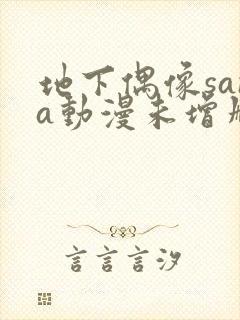 地下偶像sa
a動漫未增
言言言汐